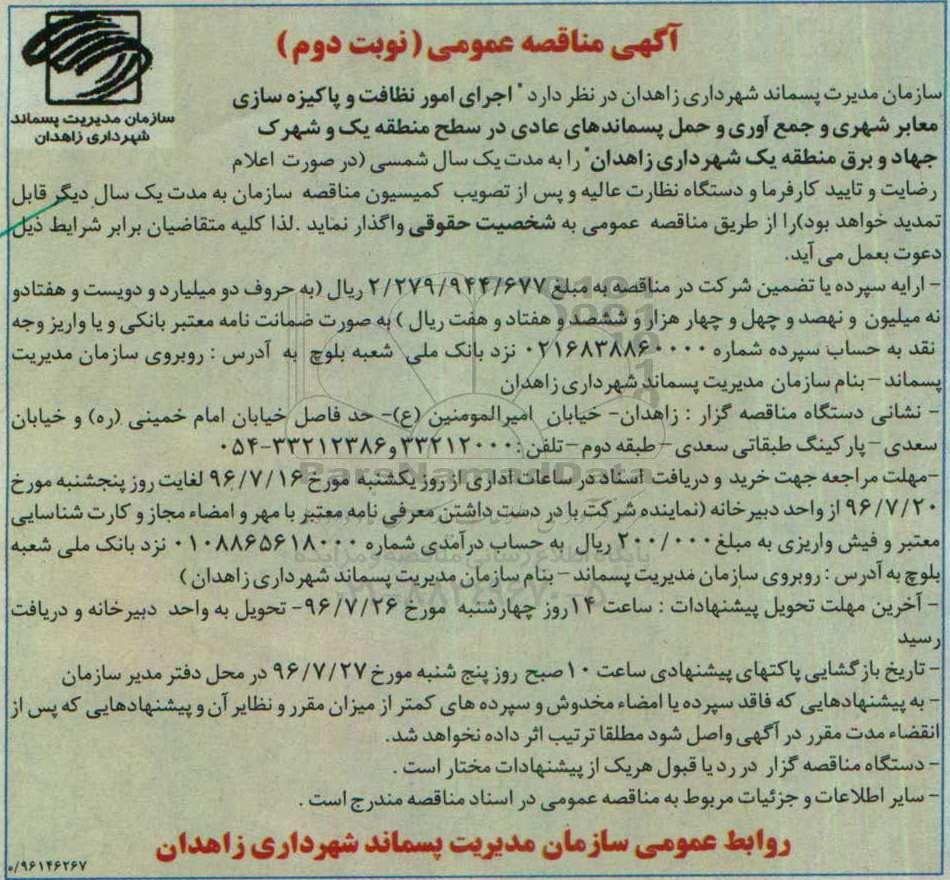 آگهی مناقصه عمومی (نوبت دوم)
سازمان مدیریت پسماند
شهرداری زاهدان
سازمان مدیرت پسماند شهرداری زاهدان در نظر دارد " اجرای امور نظافت و پاکیزه سازی
معابر شهری و جمع آوری و حمل پسماندهای عادی در سطح منطقه یک و شهرک
جهاد و برق منطقه یک شهرداری زاهدان" را به مدت یک سال شمسی (در صورت اعلام
رضایت و تایید کارفرما و دستگاه نظارت عالیه و پس از تصویب کمیسیون مناقصه سازمان به مدت یک سال دیگر قابل
تمدید خواهد بود)را از طریق مناقصه عمومی به شخصیت حقوقی واگذار نماید .لذا کلیه متقاضیان برابر شرایط ذیل
دعوت بعمل می آید.
- ارایه سپرده یا تضمین شرکت در مناقصه به مبلغ ۲/۲۷۹/۹۴۴/۶۷۷ ریال (به حروف دو میلیارد و دویست و هفتادو
نه میلیون و نهصد و چهل و چهار هزار و ششصد و هفتاد و هفت ریال ) به صورت ضمانت نامه معتبر بانکی و یا واریز وجه
نقد به حساب سپرده شماره ۰۲۱۶۸۳۸۸۶۰۰۰۰ نزد بانک ملی شعبه بلوچ به آدرس : روبروی سازمان مدیریت
پسماند – بنام سازمان مدیریت پسماند شهرداری زاهدان
- نشانی دستگاه مناقصه گزار : زاهدان- خیابان امیرالمومنین (ع)- حد فاصل خیابان امام خمینی (ره) و خیابان
سعدی – پارکینگ طبقاتی سعدی – طبقه دوم – تلفن : ۳۳۲۱۲۰۰۰ و ۳۳۲۱۲۳۸۶-۰۵۴
-مهلت مراجعه جهت خرید و دریافت اسناد در ساعات اداری از روز یکشنبه مورخ ۹۶/۷/۱۶ لغایت روز پنجشنبه مورخ
۹۶/۷/۲۰ از واحد دبیرخانه (نماینده شرکت با در دست داشتن معرفی نامه معتبر با مهر و امضاء مجاز و کارت شناسایی
معتبر و فیش واریزی به مبلغ ۲۰۰/۰۰۰ ریال به حساب درآمدی شماره ۰۱۰۸۸۶۵۶۱۸۰۰۰ نزد بانک ملی شعبه
بلوچ به آدرس : روبروی سازمان مدیریت پسماند – بنام سازمان مدیریت پسماند شهرداری زاهدان )
- آخرین مهلت تحویل پیشنهادات : ساعت ۱۴روز چهارشنبه مورخ ۹۶/۷/۲۶- تحویل به واحد دبیرخانه و دریافت
رسید
- تاریخ بازگشایی پاکتهای پیشنهادی ساعت ۱۰صبح روز پنج شنبه مورخ ۹۶/۷/۲۷ در محل دفتر مدیر سازمان
- به پیشنهادهایی که فاقد سپرده یا امضاء مخدوش و سپرده های کمتر از میزان مقرر و نظایر آن و پیشنهادهایی که پس از
انقضاء مدت مقرر در آگهی واصل شود مطلقا ترتیب اثر داده نخواهد شد.
- دستگاه مناقصه گزار در رد یا قبول هریک از پیشنهادات مختار است .
- سایر اطلاعات و جزئیات مربوط به مناقصه عمومی در اسناد مناقصه مندرج است .
روابط عمومی سازمان مدیریت پسماند شهرداری زاهدان
ParsNamadData